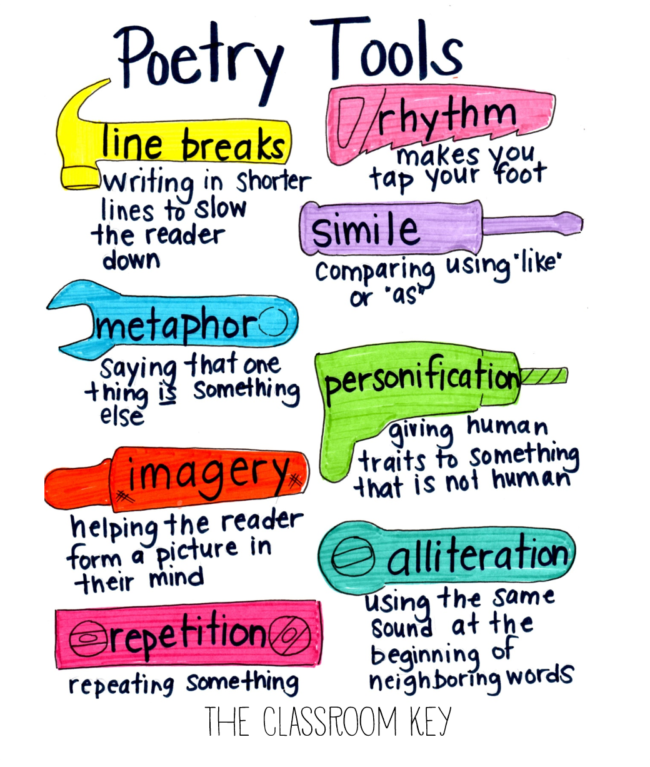 Poetry Tools
line breaks
writing in shorter
lines to slow
the reader
down
rhythm
makes you
tap your foot
simile
comparing using "like"
or "as"
metaphor
saying that one
thing is something
else
personification
giving human
traits to something
that is not human
imagery
helping the reader
form a picture in
their mind
alliteration
using the same
sound at the
beginning of
neighboring words
repetition
repeating something
THE CLASSROOM KEY